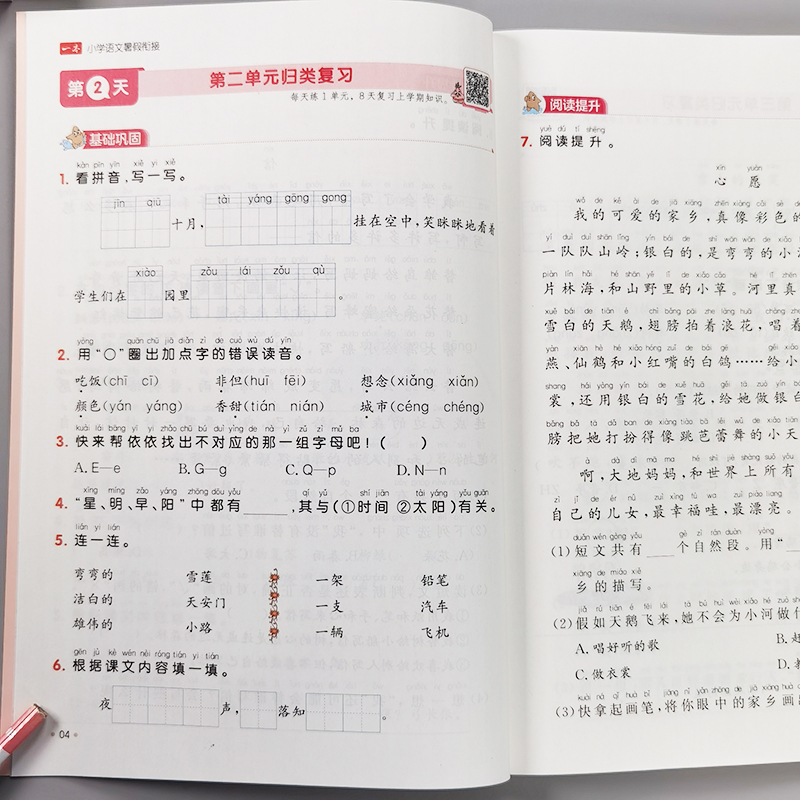 一本 小学语文暑假衔接
第2天
第二单元归类复习
每天练1单元,8天复习上学期知识。
基础巩固
kàn pīn yīn xiě yi xiě
1. 看拼音,写一写。
jīn qiū tài yáng gōng gong
十月, 挂在空中,笑眯眯地看着
xiào zǒu lái zǒu qù
学生们在 园里 。
yòng quān chū jiā diǎn zì de cuò wù dú yīn
2. 用“○”圈出加点字的错误读音。
吃饭(chī cī) 非但(huī fēi) 想念(xiǎng xiǎn)
颜色(yán yáng) 香甜(tián nián) 城市(céng chéng)
kuài lái bāng yī yi zhǎo chū bú duì yìng de nà yì zǔ zì mǔ ba
3. 快来帮依依找出不对应的那一组字母吧!( )
A.E—e B.G—g C.Q—p D.N—n
xīng míng zǎo yáng zhōng dōu yǒu qí yǔ shí jiān tài yáng yǒu guān
4. “星、明、早、阳”中都有____,其与(①时间 ②太阳)有关。
lián yi lián
5. 连一连。
弯弯的 雪莲 一架 铅笔
洁白的 天安门 一支 汽车
雄伟的 小路 一辆 飞机
gēn jù kè wén nèi róng tián yi tián
6. 根据课文内容填一填。
夜 声, 落知 。
04
阅读提升
yuè dú tí shēng
7. 阅读提升。
xīn yuàn
心愿
我的可爱的家乡,真像彩色的
一队队山岭;银白的,是弯弯的小
片林海,和山野里的小草。河里真
雪白的天鹅,翅膀拍着浪花,唱着
燕、仙鹤和小红嘴的白鸽……给小
裳,还用银白的雪花,给她做银白
膀把她打扮得像跳芭蕾舞的小天
啊,大地妈妈,和世界上所有
自己的儿女,最幸福哇,最漂亮。
duǎn wén gòng yǒu gè zì rán duàn yòng
(1)短文共有____个自然段。用“
xiāng de miáo xiě
乡的描写。
(2)假如天鹅飞来,她不会为小河做什
A.唱好听的歌 B.
C.做衣裳 D.
(3)快拿起画笔,将你眼中的家乡画